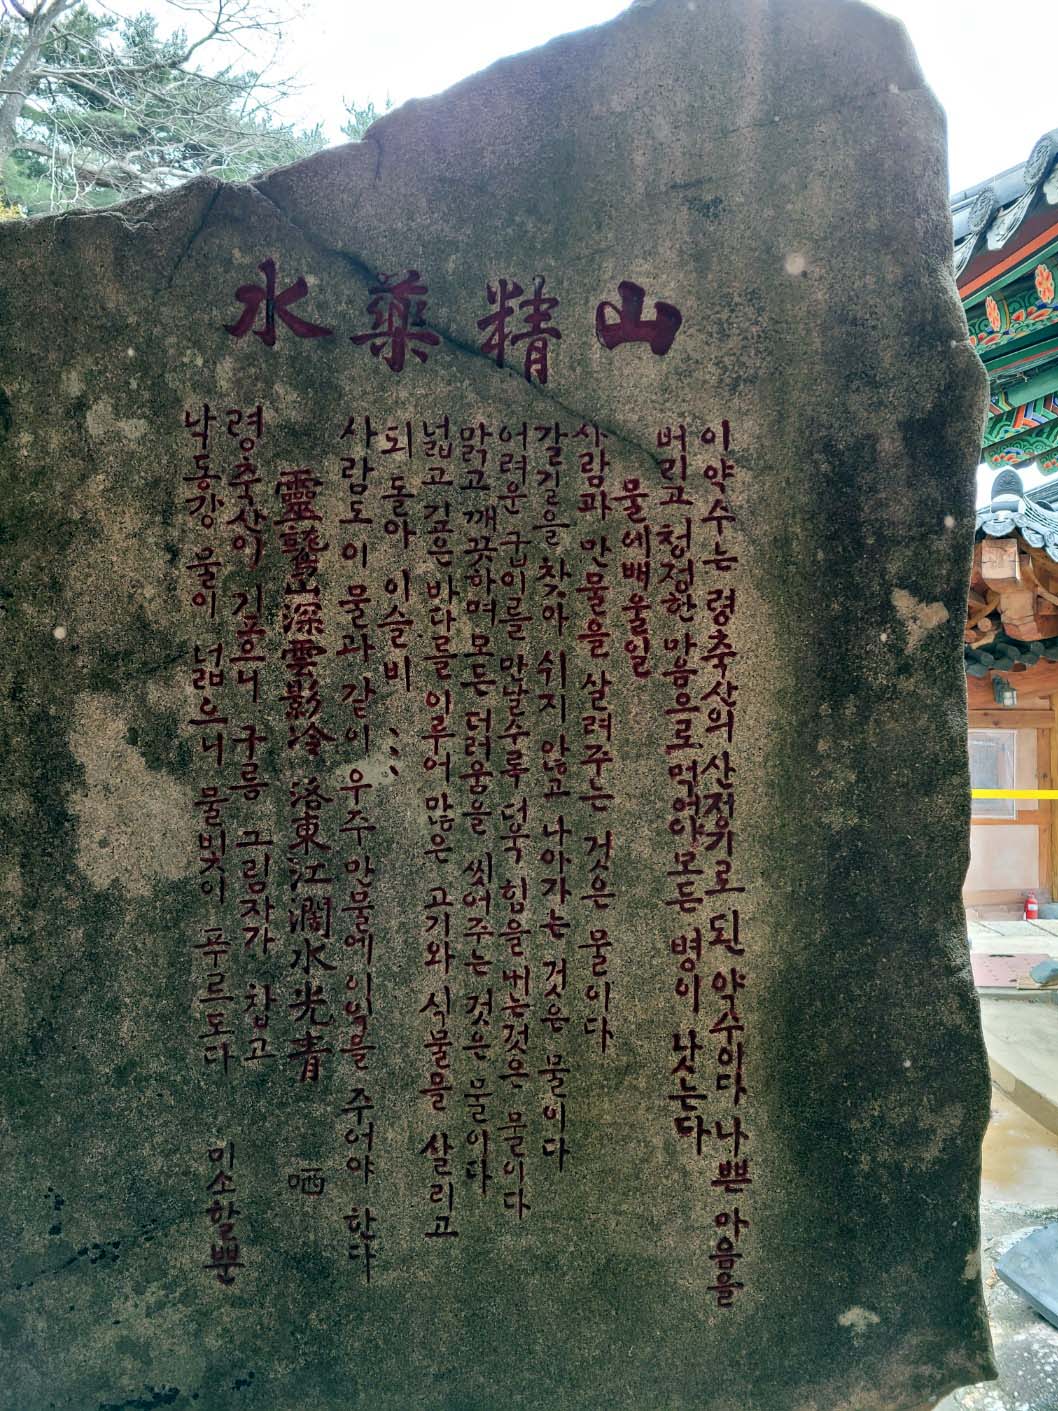 山精藥水
이약수는 령축산의 산정기로 된 약수이다 나쁜 마음을
버리고 청정한 마음으로 먹어야 모든 병이 낫는다
물에배울일
사람과 만물을 살려주는 것은 물이다
갈길을 찾아 쉬지 않고 나아가는 것은 물이다
어려운 굽이를 만날수록 더욱 힘을 내는것은 물이다
맑고 깨끗하며 모든 더러움을 씻어주는 것은 물이다
넓고 깊은 바다를 이루어 많은 고기와 식물을 살리고
되돌아 이슬비 ...
사람도 이 물과 같이 우주만물에 이익을 주어야 한다
靈鷲山深雲影冷 洛東江濶水光青 哂
령축산이 기프니 구름 그림자가 참고
낙동강 물이 넓으니 물빛이 푸르도다 미소할뿐